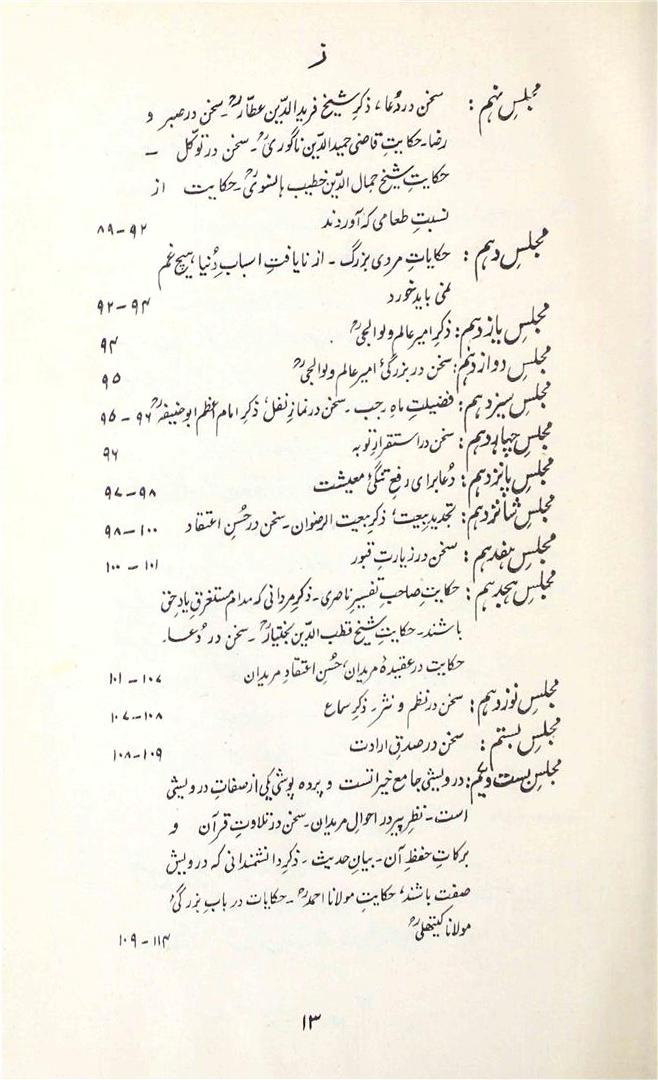 ز
مجلسِ نہم : سخن در دُعا، ذکرِ شیخ فرید الدّین عطّارؒ۔ سخن در صبر و
رضا۔ حکایتِ قاضی حمید الدّین ناگوریؒ۔ سخن در توکّل –
حکایتِ شیخ جمال الدّین خطیب ہانسویؒ۔ حکایت از
نسبتِ طعامی کہ آوردند ۸۹–۹۲
مجلسِ دہم : حکایاتِ مردی بزرگ ۔ از نایافتِ اسبابِ دُنیا ہیچ غم
نمی باید خورد ۹۲–۹۴
مجلسِ یازدہم : ذکرِ امیر عالم ولوالجیؒ ۹۴
مجلسِ دوازدہم : سخن در بزرگیٔ امیر عالم ولوالجیؒ ۹۵
مجلسِ سیزدہم : فضیلتِ ماہِ رجب ۔ سخن در نمازِ نفل، ذکرِ امام اعظم ابو حنیفہؒ ۹۵–۹۶
مجلسِ چہاردہم : سخن در استقرارِ توبہ ۹۶
مجلسِ پانزدہم : دُعا برای رفعِ تنگیٔ معیشت ۹۷–۹۸
مجلسِ شانزدہم : تجدیدِ بیعت، ذکرِ بیعت الرضوان ۔ سخن در حُسنِ اعتقاد ۹۸–۱۰۰
مجلسِ ہفدہم : سخن در زیارتِ قبور ۱۰۰–۱۰۱
مجلسِ ہجدہم : حکایتِ صاحبِ تفسیرِ ناصری ۔ ذکرِ مردانی کہ مدام مستغرقِ یادِ حق
باشند۔ حکایتِ شیخ قطب الدّین بختیارؒ ۔ سخن در دُعا۔
حکایت در عقیدۂ مریدان، حُسنِ اعتقادِ مریدان ۱۰۱–۱۰۷
مجلسِ نوزدہم : سخن در نظم و نثر ۔ ذکرِ سماع ۱۰۷–۱۰۸
مجلسِ بستم : سخن در صدقِ ارادت ۱۰۸–۱۰۹
مجلسِ بست و یکم : درویشی جامع خیر انست و پردہ پوشی یکی از صفاتِ درویشی
است ۔ نظرِ پیر در احوالِ مریدان ۔ سخن در تلاوتِ قرآن و
برکاتِ حفظِ آن ۔ بیانِ حدیث ۔ ذکرِ دانشمندانی کہ درویش
صفت باشند، حکایتِ مولانا احمدؒ ۔ حکایات در بابِ بزرگیٔ
مولانا کیتھلیؒ ۱۰۹–۱۱۴
۱۳